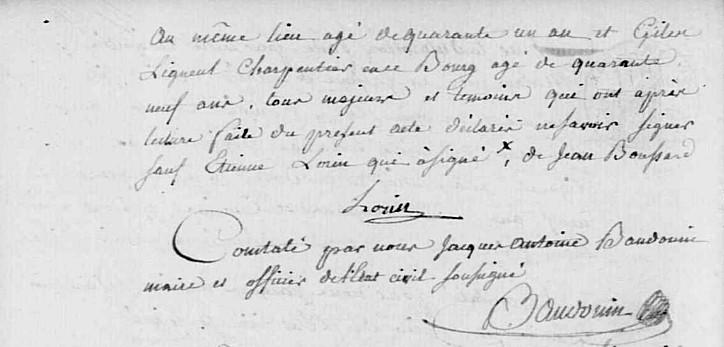 au même lieu agé de quarante un an et
Ligneul Charpentier en ce Bourg agé de quarante
neuf ans, tous majeurs et temoins qui ont après
lecture faite du present acte déclarés ne savoir signer
sauf Etienne Lorin qui à signé x, de Jean Boussard
Lorin
Constaté par nous Jacques Antoine Baudouin
maire et officier de l'Etat civil soussigné
Baudouin